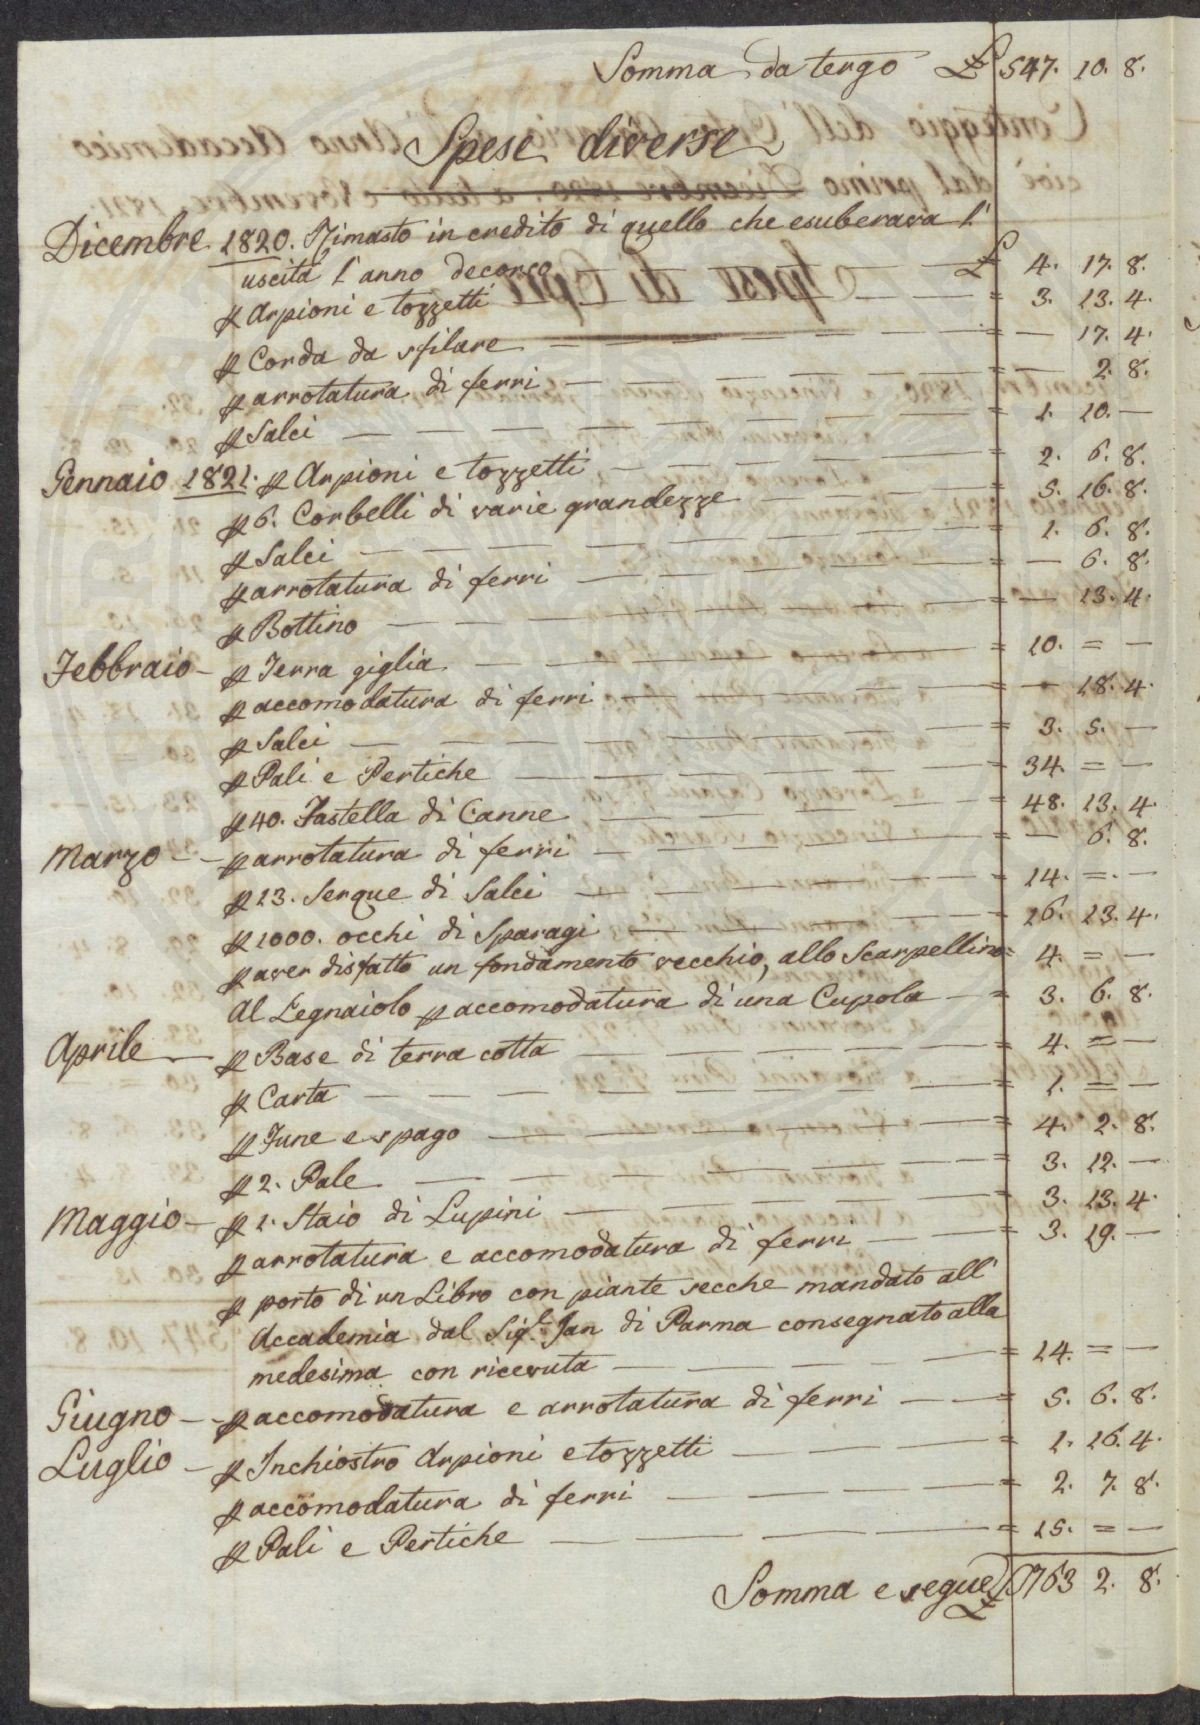 Somma da tergo £ 547. 10. 8.
Spese diverse
Dicembre 1820. Rimasto in credito di quello che esuberava l'
uscita l'anno decorso — £ 4. 17. 8.
℘ Arpioni e tozzetti — = 3. 13. 4.
℘ Corda da sfilare — = — 17. 4.
℘ arrotatura di ferri — = — 2. 8.
℘ Salci — = 1. 10. —
Gennaio 1821. ℘ Arpioni e tozzetti — = 2. 6. 8.
℘ 6. Corbelli di varie grandezze — = 5. 16. 8.
℘ Salci — = 1. 6. 8.
℘ arrotatura di ferri — = — 6. 8.
℘ Bottino — = — 13. 4.
Febbraio — ℘ Terra giglia — = 10. = —
℘ accomodatura di ferri — = — 18. 4.
℘ Salci — = 3. 5. —
℘ Pali e Pertiche — = 34. = —
℘ 40. Fastella di Canne — = 48. 13. 4.
Marzo — ℘ arrotatura di ferri — = — 6. 8.
℘ 13. Serque di Salci — = 14. = —
℘ 1000. occhi di Sparagi — = 16. 13. 4.
℘ aver disfatto un fondamento vecchio, allo Scarpellino = 4. = —
Al Legnaiolo ℘ accomodatura di una Cupola — = 3. 6. 8.
Aprile — ℘ Base di terra cotta — = 4. = —
℘ Carta — = 1. = —
℘ Fune e spago — = 4. 2. 8.
℘ 2. Pale — = 3. 12. —
Maggio — ℘ 1. Staio di Lupini — = 3. 13. 4.
℘ arrotatura e accomodatura di ferri — = 3. 19. —
℘ porto di un Libro con piante secche mandato all'
Accademia dal Sigr. Jan di Parma consegnato alla
medesima con ricevuta — = 14. = —
Giugno — ℘ accomodatura e arrotatura di ferri — = 5. 6. 8.
Luglio — ℘ Inchiostro Arpioni e tozzetti — = 1. 16. 4.
℘ accomodatura di ferri — = 2. 7. 8.
℘ Pali e Pertiche — = 15. = —
Somma e segue £ 763 2. 8.